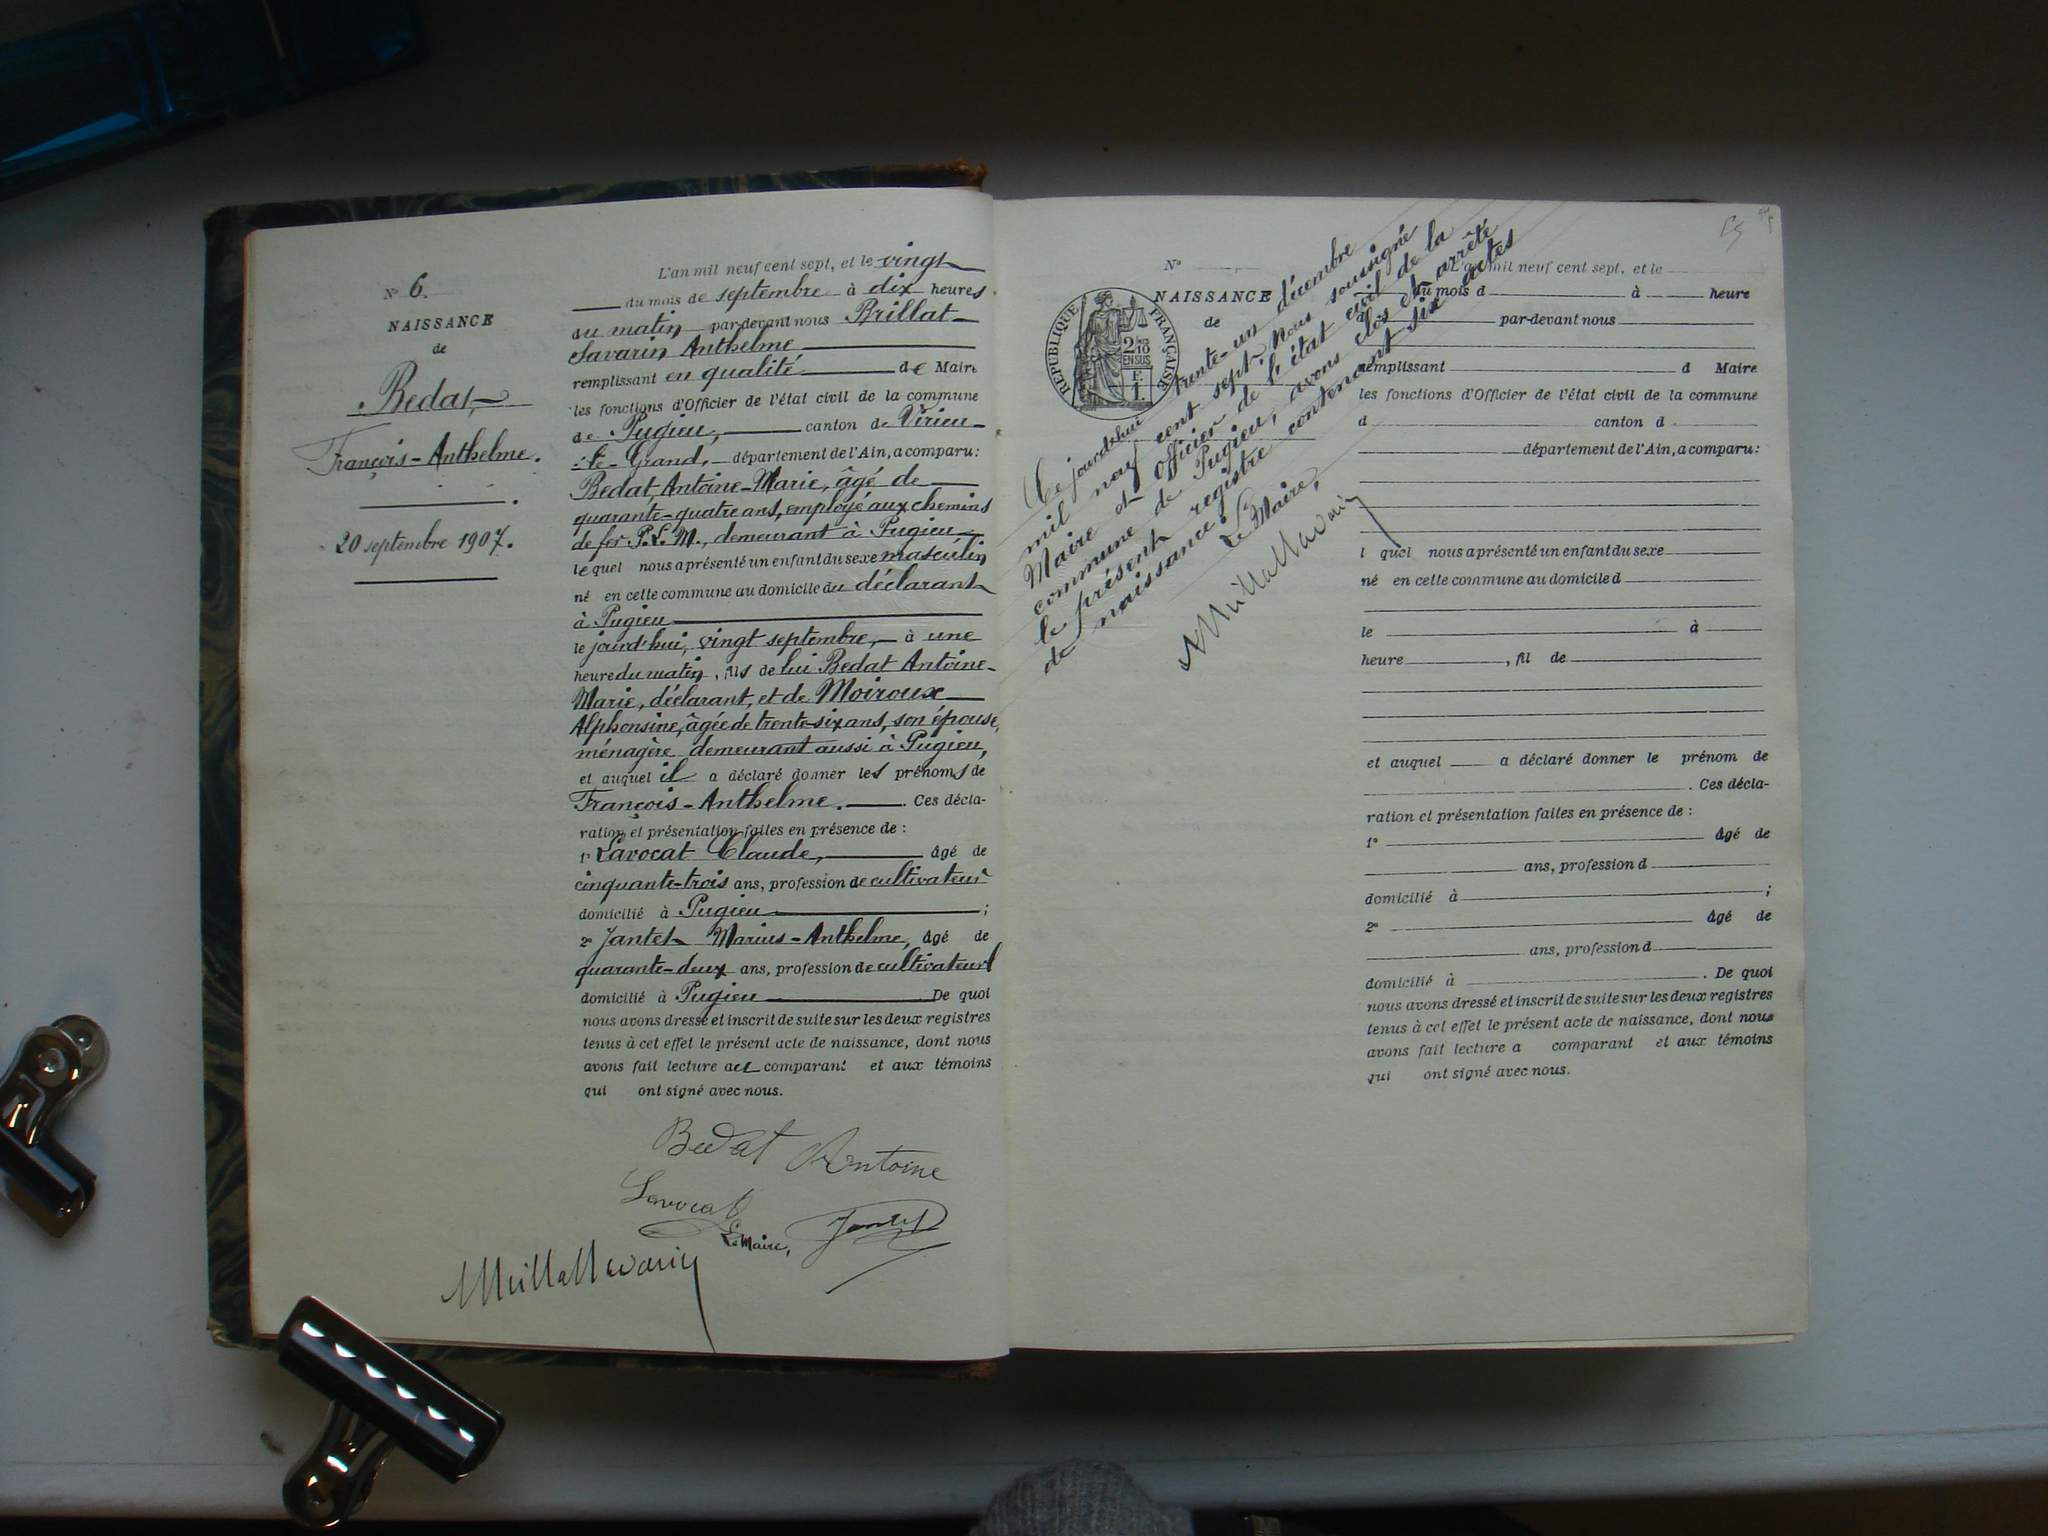 N° 6.
NAISSANCE
de
Bedat
François-Anthelme.
20 septembre 1907.
L'an mil neuf cent sept, et le vingt
du mois de septembre à dix heures
du matin par-devant nous Brillat-
Savarin Anthelme
remplissant en qualité de Maire
les fonctions d'Officier de l'état civil de la commune
de Pugieu, canton de Virieu-
-le-Grand, département de l'Ain, a comparu:
Bedat Antoine-Marie, âgé de
quarante-quatre ans, employé aux chemins
de fer P.L.M., demeurant à Pugieu
lequel nous a présenté un enfant du sexe masculin
né en cette commune au domicile du déclarant
à Pugieu
le jourd'hui, vingt septembre, à une
heure du matin, fils de lui Bedat Antoine-
Marie, déclarant, et de Moiroux
Alphonsine, âgée de trente-six ans, son épouse,
ménagère demeurant aussi à Pugieu,
et auquel il a déclaré donner les prénoms de
François-Anthelme. Ces décla-
ration et présentation faites en présence de :
1° Lavocat Claude, âgé de
cinquante-trois ans, profession de cultivateur
domicilié à Pugieu ;
2° Jantet Marius-Anthelme, âgé de
quarante-deux ans, profession de cultivateur
domicilié à Pugieu De quoi
nous avons dressé et inscrit de suite sur les deux registres
tenus à cet effet le présent acte de naissance, dont nous
avons fait lecture au comparant et aux témoins
qui ont signé avec nous.
Bedat Antoine
Lavocat
Le Maire, Jantet
N°
NAISSANCE
de
RÉPUBLIQUE FRANÇAISE
2/10 EN SUS
1 F.
Ce jourd'hui trente-un décembre
mil neuf cent sept, Nous soussigné
Maire et Officier de l'état civil de la
commune de Pugieu, avons clos et arrêté
le présent registre contenant six actes
de naissance.
Le Maire,
L'an mil neuf cent sept, et le
du mois d à heure
d par-devant nous
remplissant d Maire
les fonctions d'Officier de l'état civil de la commune
d canton d
département de l'Ain, a comparu:
l quel nous a présenté un enfant du sexe
né en cette commune au domicile d
le à
heure , fil de
et auquel a déclaré donner le prénom de
. Ces décla-
ration et présentation faites en présence de :
1° âgé de
ans, profession d
domicilié à ;
2° âgé de
ans, profession d
domicilié à . De quoi
nous avons dressé et inscrit de suite sur les deux registres
tenus à cet effet le présent acte de naissance, dont nous
avons fait lecture a comparant et aux témoins
qui ont signé avec nous.